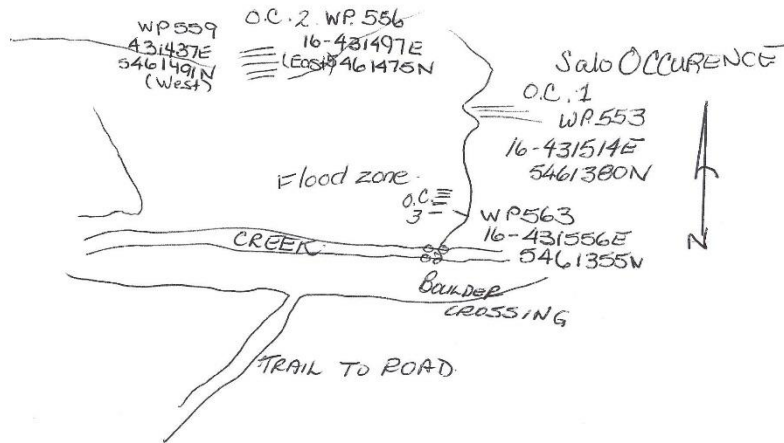 WP559
431437E
5461491N
(West)
O.C. 2 WP. 556
16-431497E
(East) 5461475N
Salo OCCURENCE
O.C. 1
WP. 553
16-431514E
5461380N
Flood zone.
O.C.
3
WP563
16-431556E
5461355N
N
CREEK
BOULDER
CROSSING
TRAIL TO ROAD